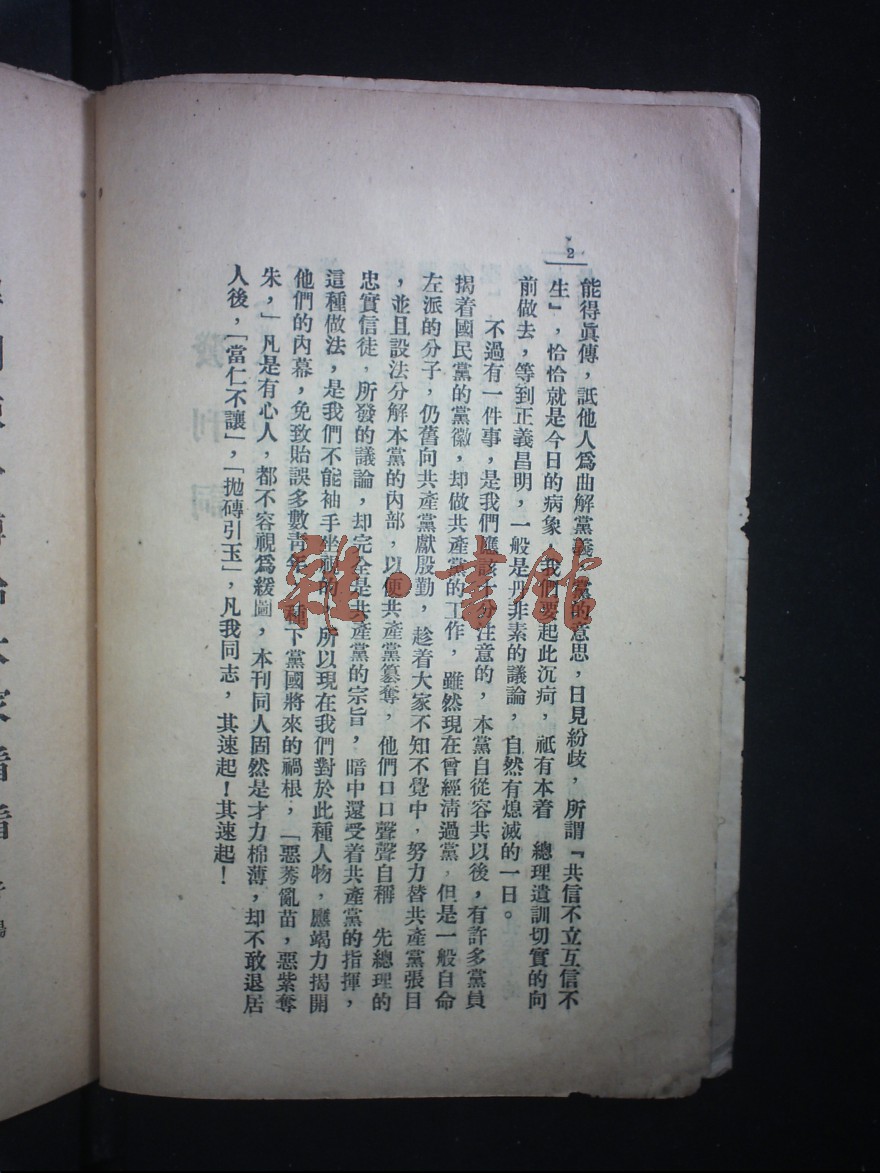 2
能得眞傳，詆他人爲曲解黨義，黨的意思，日見紛歧，所謂『共信不立互信不
生』，恰恰就是今日的病象，我們要起此沉疴，祇有本着　總理遺訓切實的向
前做去，等到正義昌明，一般是丹非素的議論，自然有熄滅的一日。
不過有一件事，是我們應該十分注意的，本黨自從容共以後，有許多黨員
揭着國民黨的黨徽，却做共產黨的工作，雖然現在曾經淸過黨，但是一般自命
左派的分子，仍舊向共產黨獻殷勤，趁着大家不知不覺中，努力替共產黨張目
，並且設法分解本黨的內部，以便共產黨篡奪，他們口口聲聲自稱　先總理的
忠實信徒，所發的議論，却完全是共產黨的宗旨，暗中還受着共產黨的指揮，
這種做法，是我們不能袖手坐視的，所以現在我們對於此種人物，應竭力揭開
他們的內幕，免致貽誤多數靑年，種下黨國將來的禍根，「惡莠亂苗，惡紫奪
朱，」凡是有心人，都不容視爲緩圖，本刊同人固然是才力棉薄，却不敢退居
人後，「當仁不讓」，「拋磚引玉」，凡我同志，其速起！其速起！
雜·書館